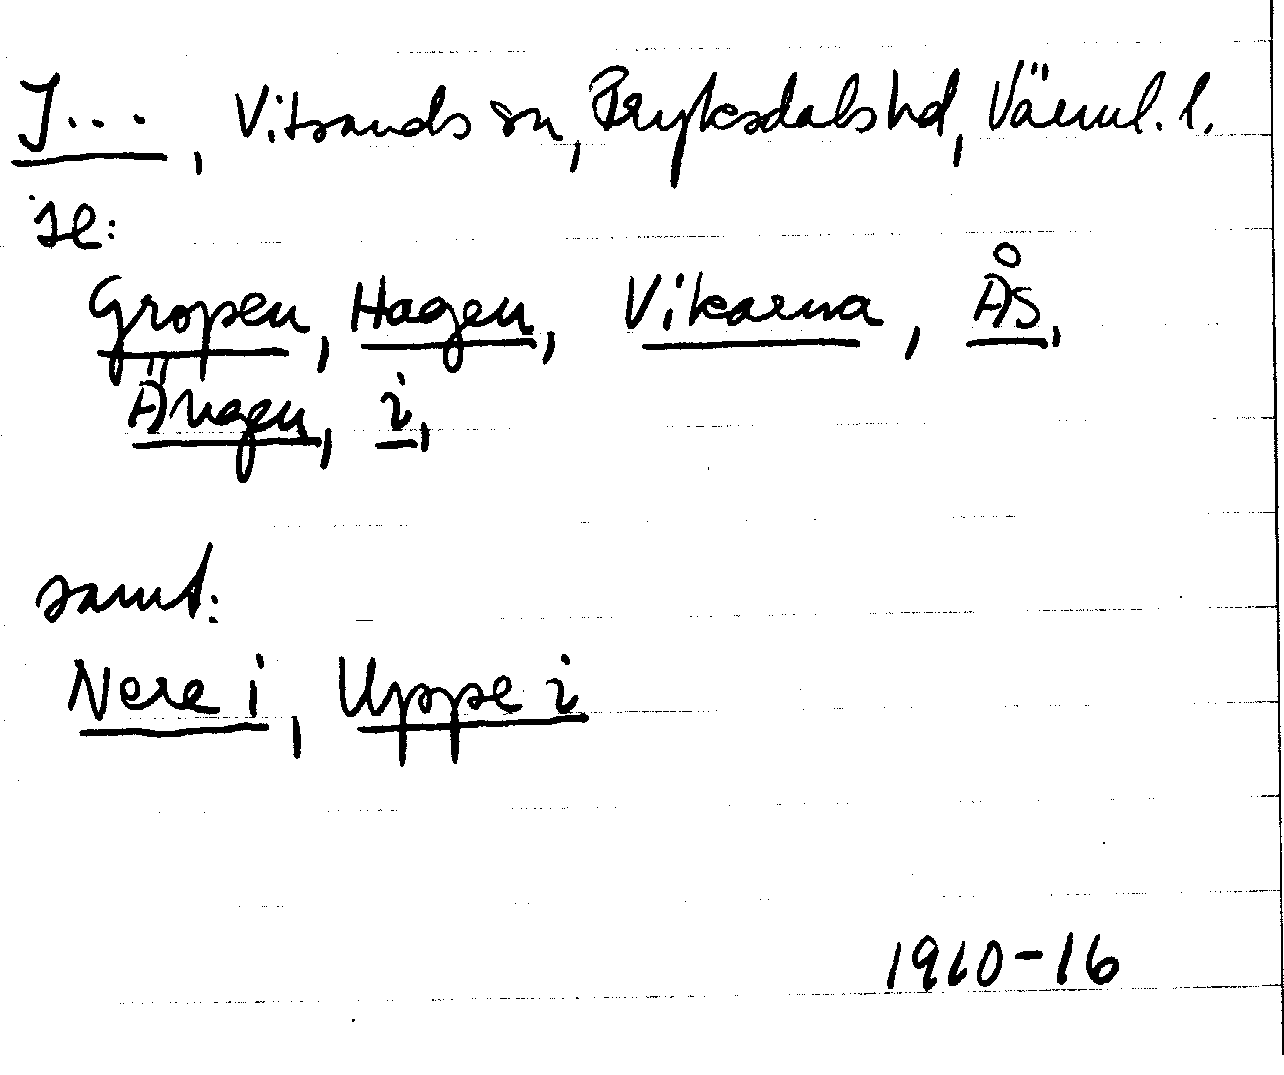 I..., Vitsands sn, Fryksdals hd, Värml. l.
se:
Gropen, Hagen, Vikarna, Ås,
Ängen, i,
samt:
Nere i, Uppe i
1910-16